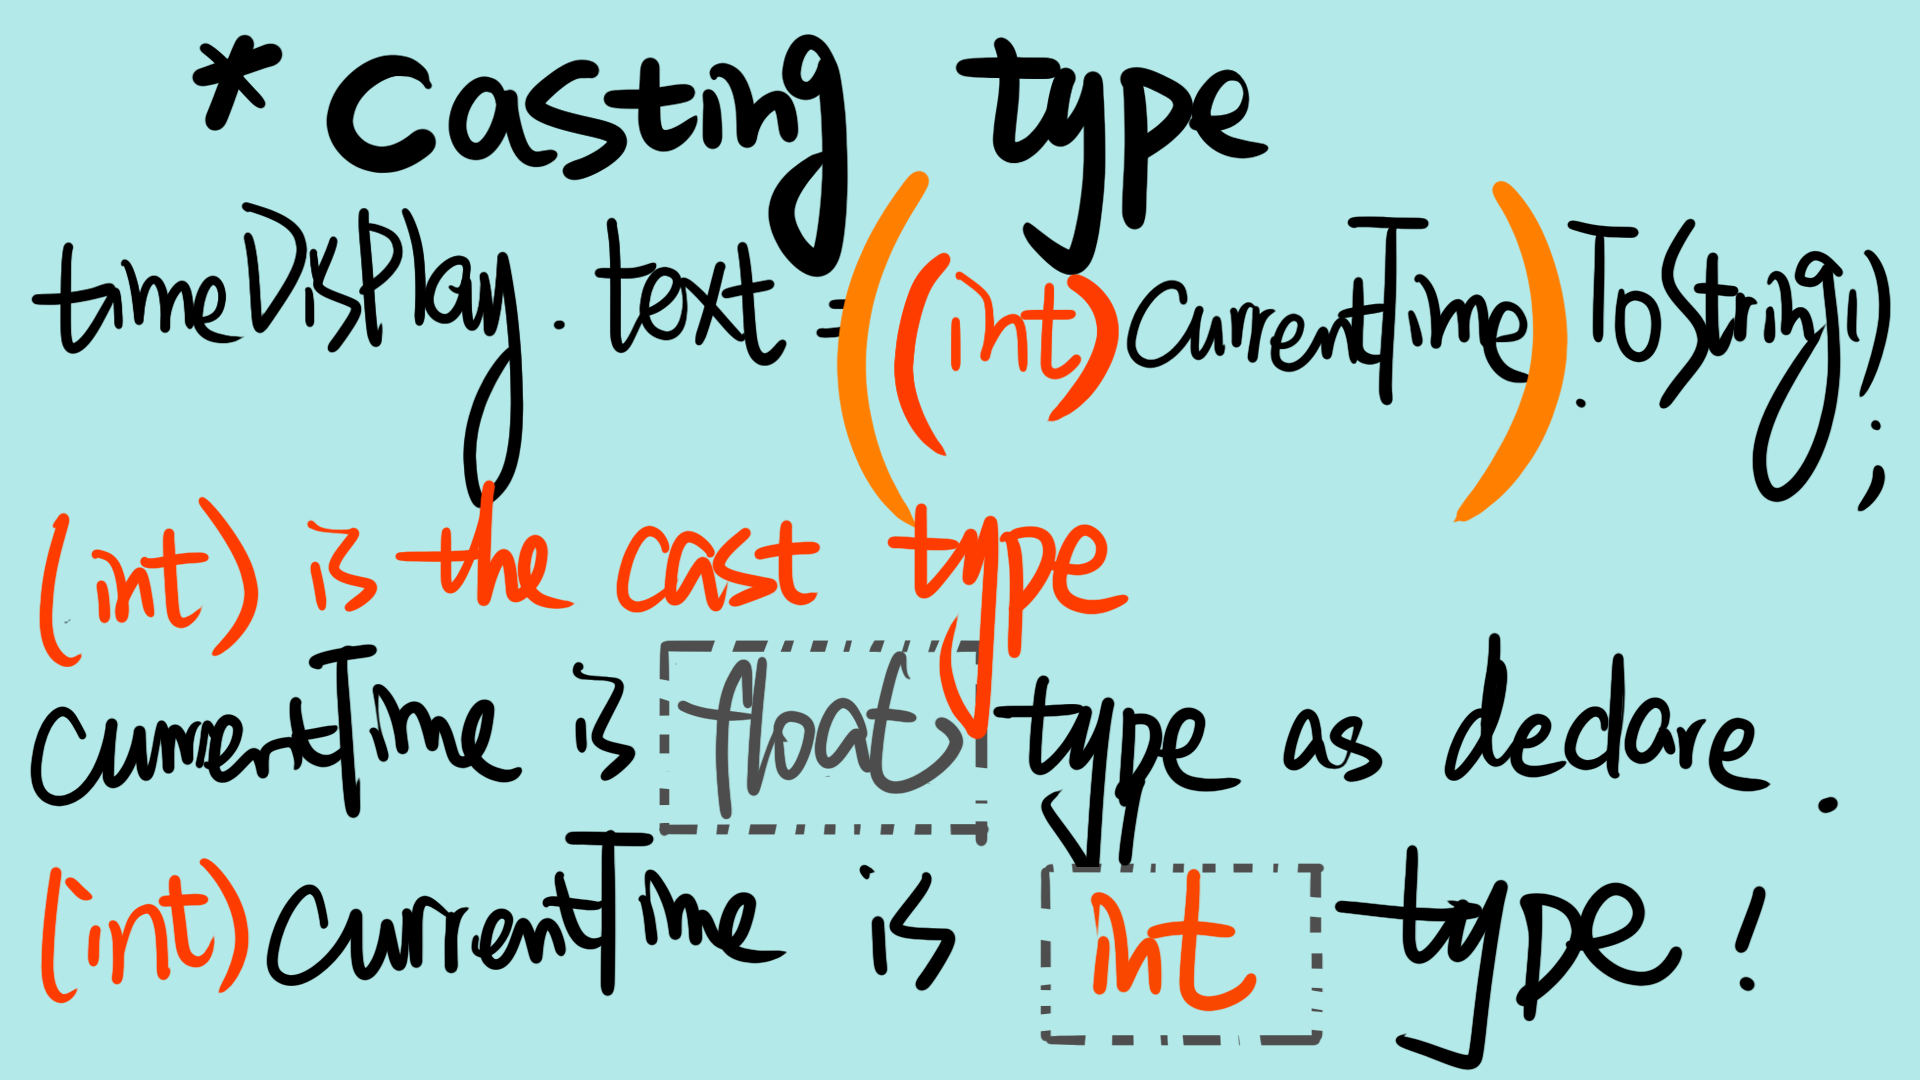 * Casting type
timeDisplay.text = ((int)CurrentTime).ToString();
(int) is the cast type
currentTime is float type as declare.
(int)CurrentTime is int type!